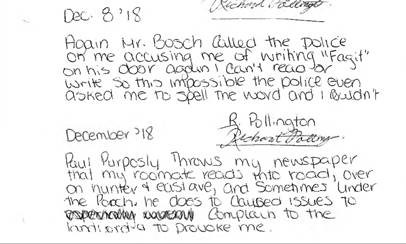 Richard Pollington
Dec. 8 '18
Again Mr. Bosch Called the police
on me accusing me of writing "Fagit"
on his door again I can't read or
write So this impossible the police even
asked me to spell the word and I couldn't
R. Pollington
December '18
Richard Polling
Paul Purposly Throws my newspaper
that my roomate reads into road, over
on hunter & eastave, and Sometimes under
the Porch. he does to Caused issues to
Complain to the
landlord to provoke me.